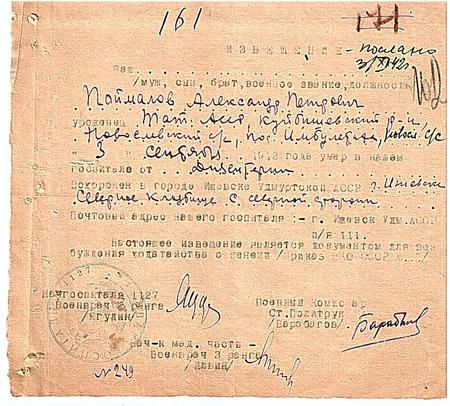 161
171
ИЗВЕЩЕНИЕ - послано
3/XI 42г.
Ваш
/муж, сын, брат, военное звание, должность
Поймалов Александр Петрович
уроженец Тат. Асср Куйбышевский р-н
с/с, пос.
" 3 " сентября 1942 года умер в нашем
госпитале от Дизентерии
Похоронен в городе Ижевске Удмуртской АССР г. Ижевск
Северное Кладбище с северной стороны
Почтовый адрес нашего госпиталя :- г. Ижевск Удм. АССР
п/я 111.
Настоящее извещение является документом для воз-
буждения ходатайства о пенсии /Приказ НКО СССР
Начгоспиталя 1127
Военврач ранга
/Ягудин/
Военный Комиссар
Ст. Политрук
/Барабагов/
Нач-к мед. части -
Военврач 3 ранга
/Ильин/
№ 249